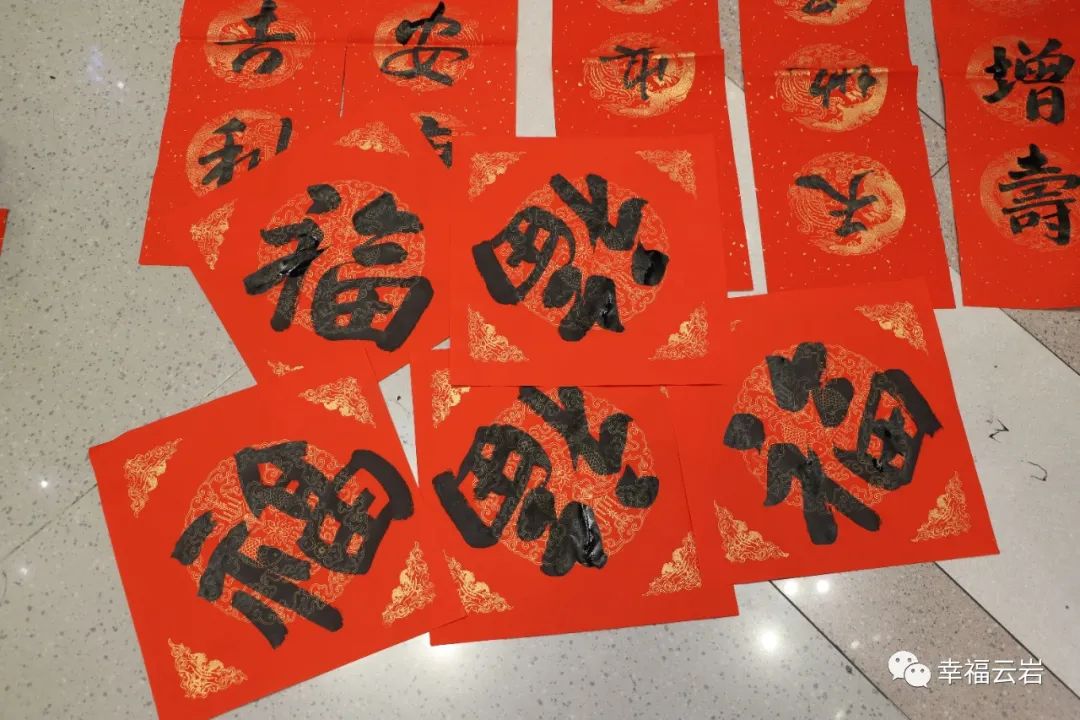 吉
利
安
天
增
壽
福
福
福
福
福
幸福云岩